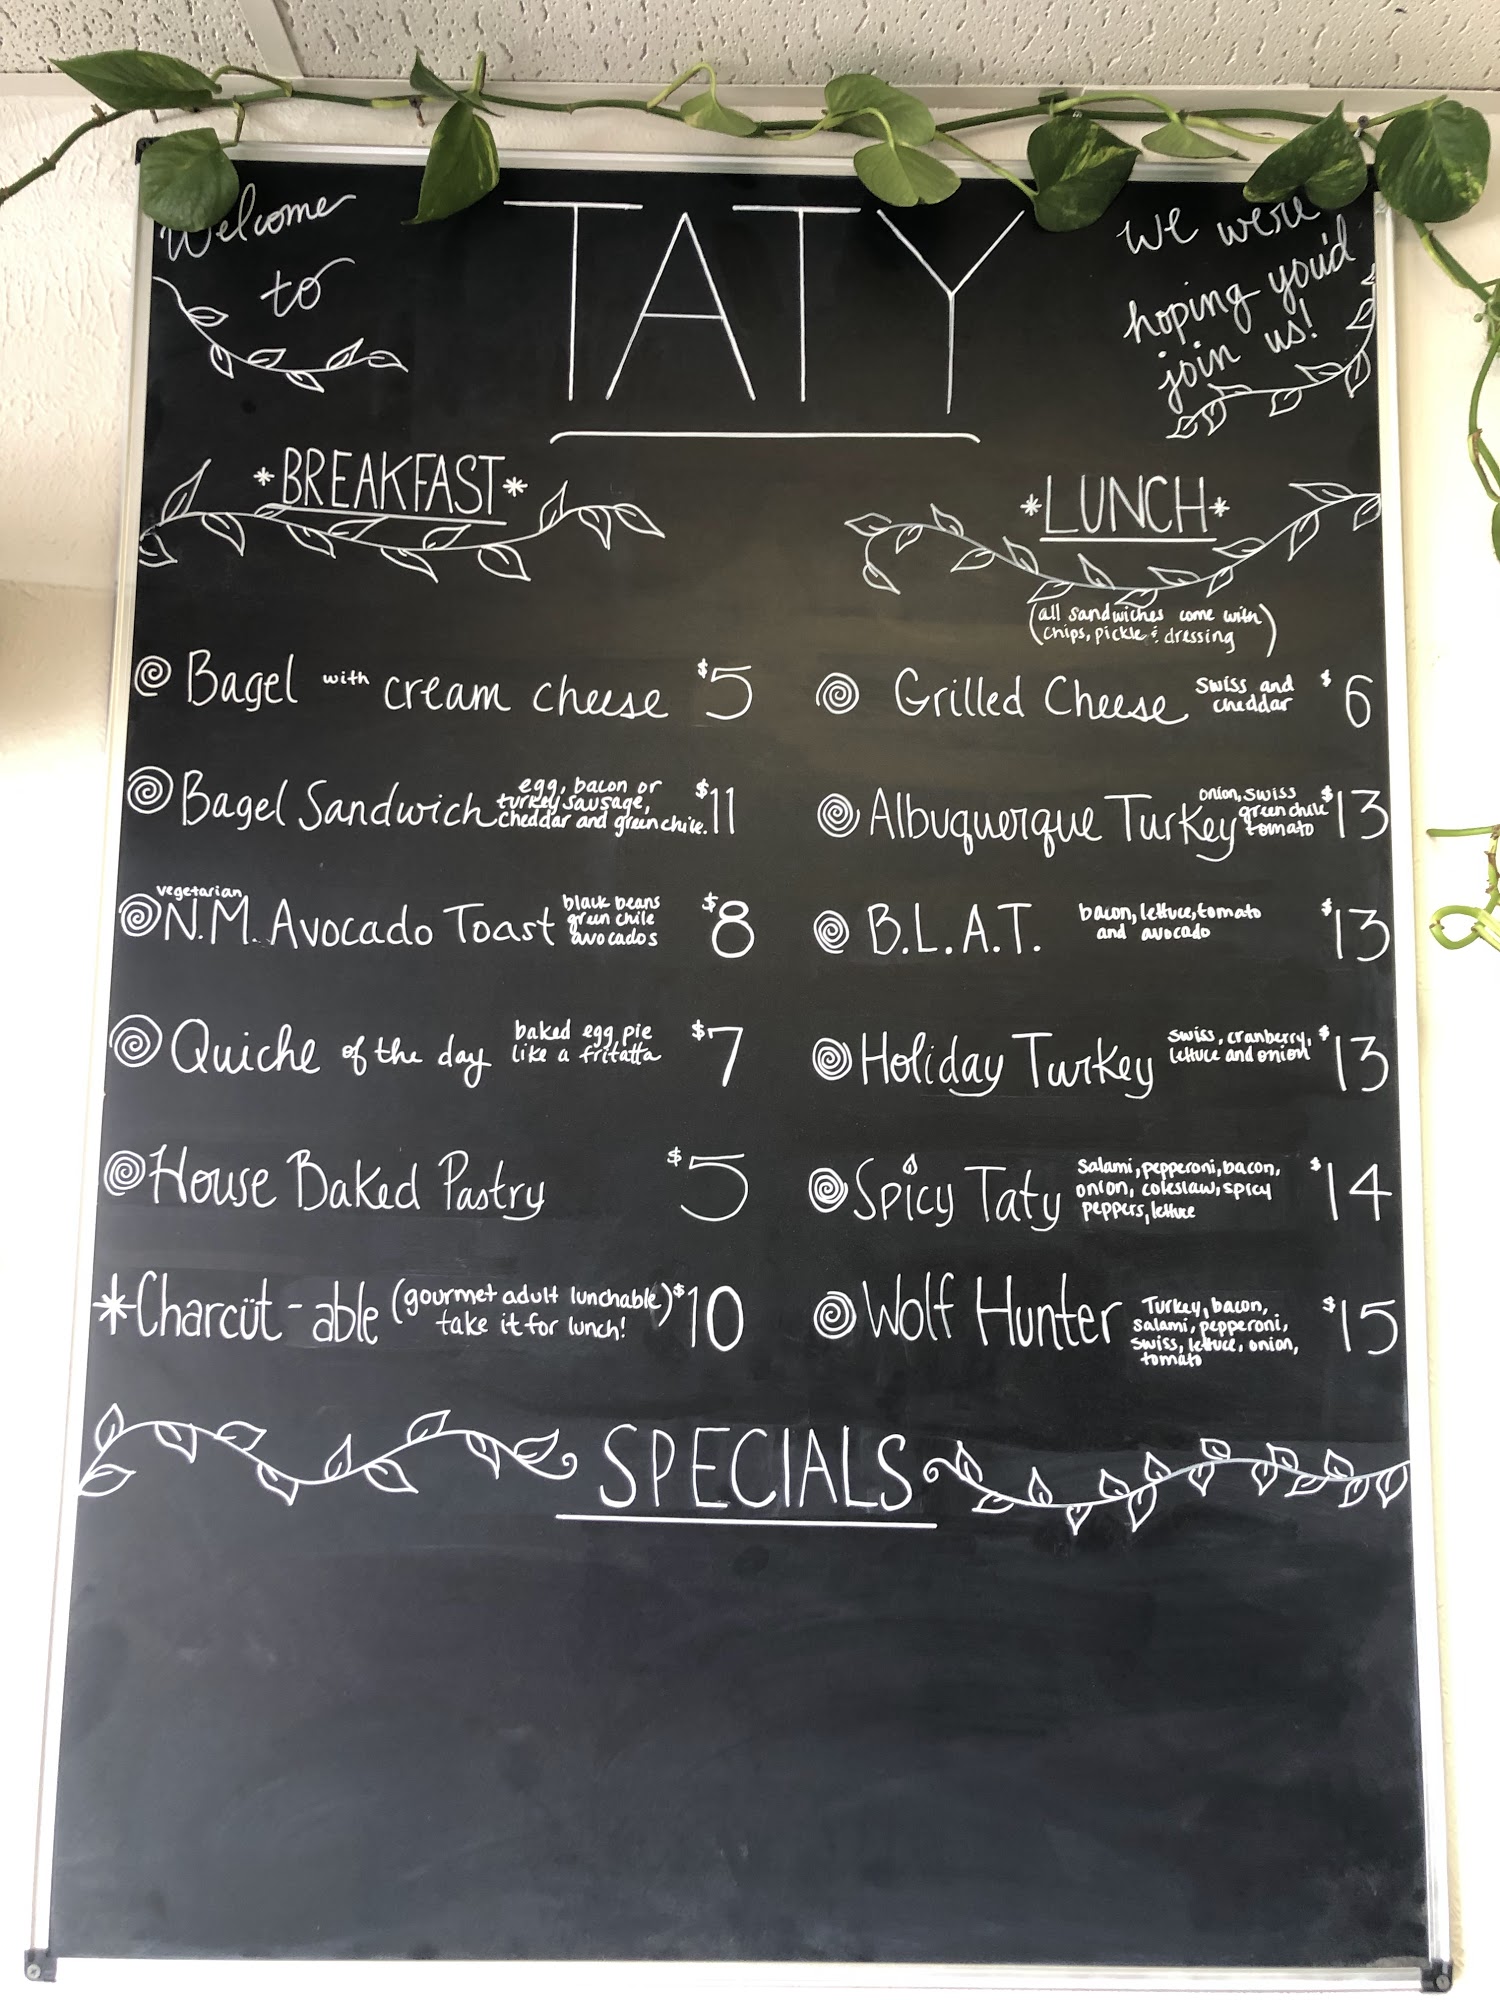 Welcome
to
TATY
We were
hoping you'd
join us!
*BREAKFAST*
Bagel with cream cheese $5
Bagel Sandwich egg, bacon or
turkey sausage,
cheddar and green chile. $11
vegetarian
N.M. Avocado Toast black beans
green chile
avocados $8
Quiche of the day baked egg pie
like a fritatta $7
House Baked Pastry $5
*Charcüt-able (gourmet adult lunchable)
take it for lunch! $10
*LUNCH*
(all sandwiches come with
chips, pickle & dressing)
Grilled Cheese swiss and
cheddar $6
Albuquerque Turkey onion, swiss
green chile
tomato $13
B.L.A.T. bacon, lettuce, tomato
and avocado $13
Holiday Turkey swiss, cranberry,
lettuce and onion $13
Spicy Taty salami, pepperoni, bacon,
onion, coleslaw, spicy
peppers, lettuce $14
Wolf Hunter Turkey, bacon,
salami, pepperoni,
swiss, lettuce, onion,
tomato $15
SPECIALS